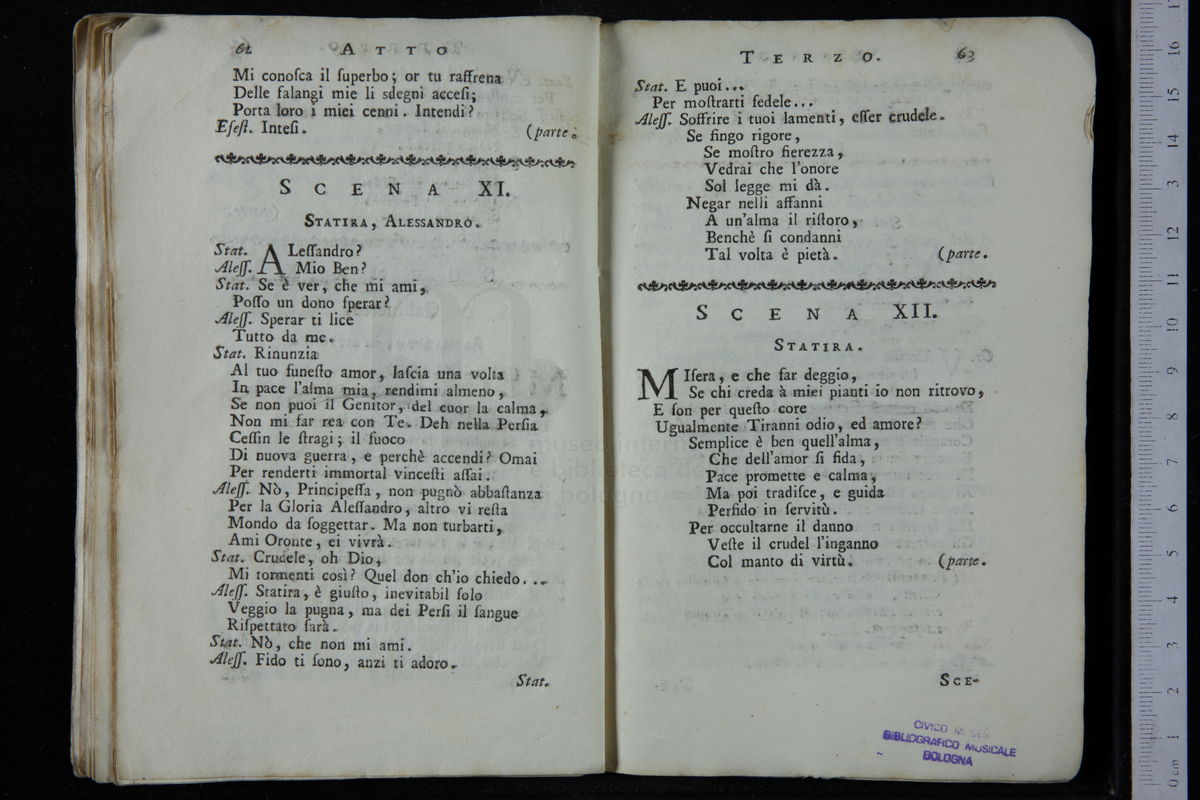 62 ATTO
Mi conoſca il ſuperbo; or tu raffrena
Delle falangi mie li sdegni acceſi;
Porta loro i miei cenni. Intendi?
Efeſt. Inteſi. (parte.
SCENA XI.
STATIRA, ALESSANDRO.
Stat. ALeſſandro?
Aleſſ. Mio Ben?
Stat. Se è ver, che mi ami,
Poſſo un dono ſperar?
Aleſſ. Sperar ti lice
Tutto da me.
Stat. Rinunzia
Al tuo funeſto amor, laſcia una volta
In pace l'alma mia, rendimi almeno,
Se non puoi il Genitor, del cuor la calma,
Non mi far rea con Te. Deh nella Perſia
Ceſſin le ſtragi; il fuoco
Di nuova guerra, e perchè accendi? Omai
Per renderti immortal vinceſti aſſai.
Aleſſ. Nò, Principeſſa, non pugnò abbaſtanza
Per la Gloria Aleſſandro, altro vi reſta
Mondo da ſoggettar. Ma non turbarti,
Ami Oronte, ei vivrà.
Stat. Crudele, oh Dio,
Mi tormenti così? Quel don ch'io chiedo...
Aleſſ. Statira, è giuſto, inevitabil ſolo
Veggio la pugna, ma dei Perſi il ſangue
Riſpettato ſarà.
Stat. Nò, che non mi ami.
Aleſſ. Fido ti ſono, anzi ti adoro.
Stat.
TERZO. 63
Stat. E puoi...
Per moſtrarti fedele...
Aleſſ. Soffrire i tuoi lamenti, eſſer crudele.
Se fingo rigore,
Se moſtro fierezza,
Vedrai che l'onore
Sol legge mi dà.
Negar nelli affanni
A un'alma il riſtoro,
Benchè ſi condanni
Tal volta è pietà. (parte.
SCENA XII.
STATIRA.
MIſera, e che far deggio,
Se chi creda à miei pianti io non ritrovo,
E ſon per queſto core
Ugualmente Tiranni odio, ed amore?
Semplice è ben quell'alma,
Che dell'amor ſi fida,
Pace promette e calma,
Ma poi tradiſce, e guida
Perfido in ſervitù.
Per occultarne il danno
Veſte il crudel l'inganno
Col manto di virtù. (parte.
SCE-
CIVICO MUSEO
BIBLIOGRAFICO MUSICALE
BOLOGNA
museo internazionale
e biblioteca della
di bologna
0 cm 1 2 3 4 5 6 7 8 9 10 11 12 13 14 15 16 17